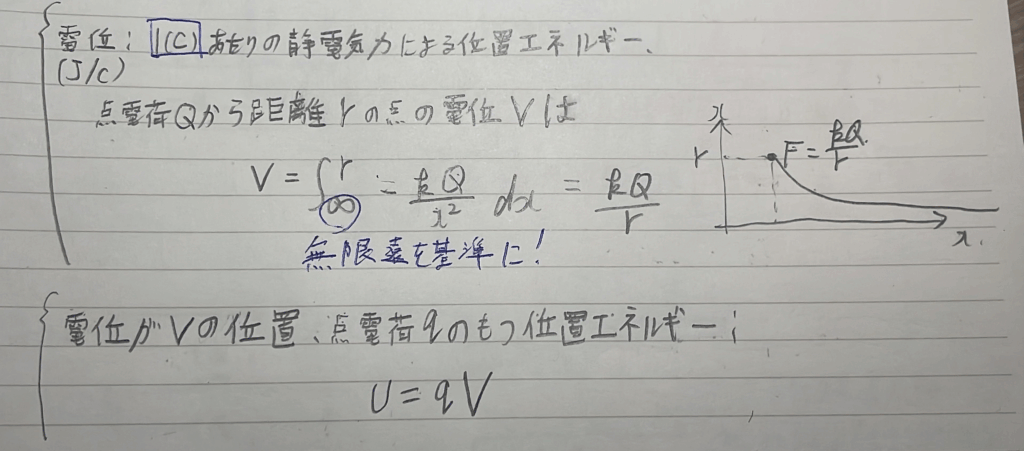 電位; 1(C)あたりの静電気力による位置エネルギー.
(J/C)
点電荷Qから距離rの点の電位Vは
V = ∫_∞^r = kQ/x² dx = kQ/r
無限遠を基準に!
r F = kQ/r
x.
電位がVの位置、点電荷qのもつ位置エネルギー;
U = qV